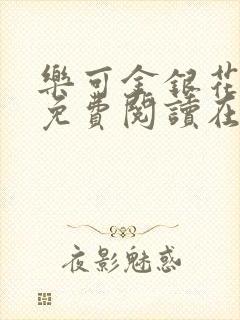 樂可金銀花
免費閱讀在
夜影魅惑